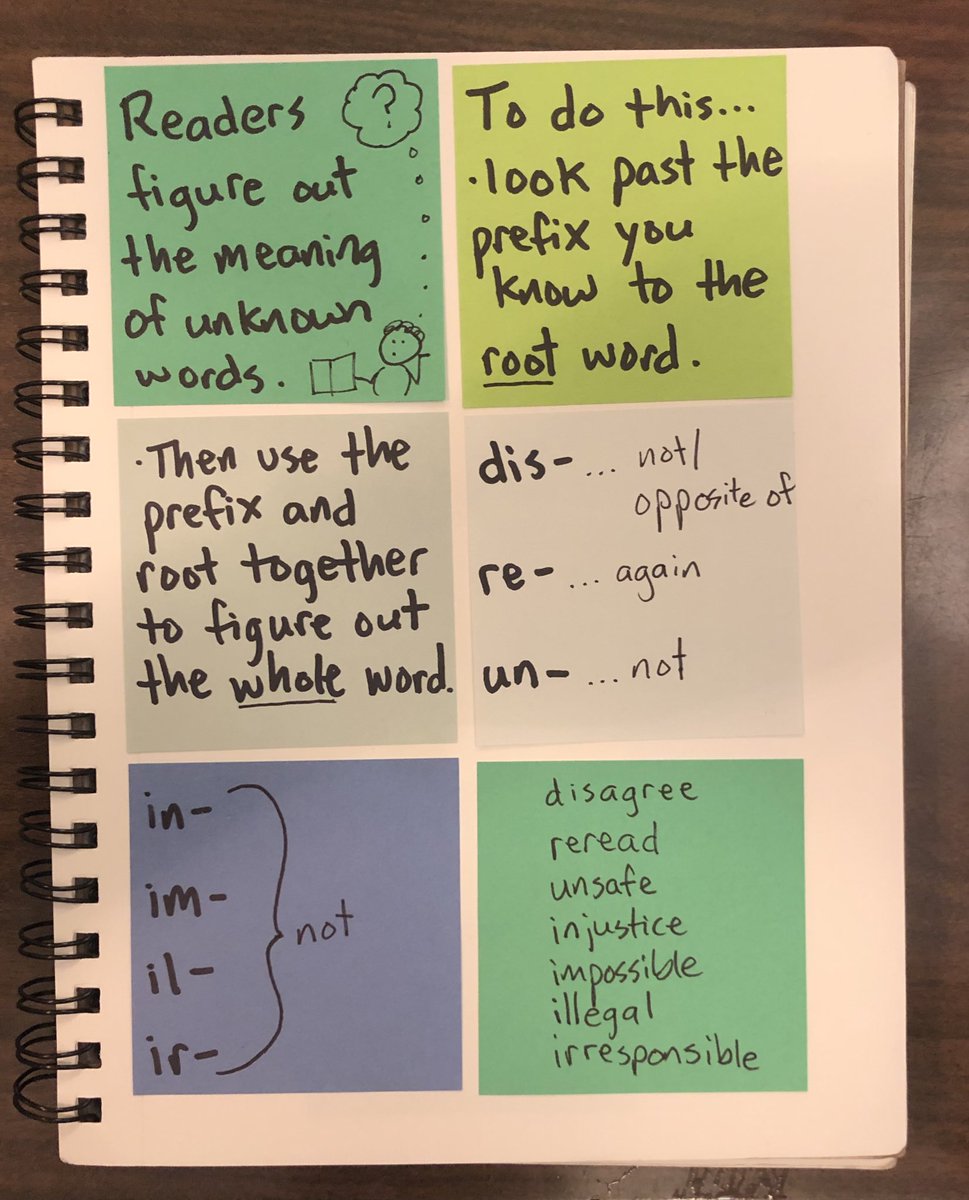 Readers
figure out
the meaning
of unknown
words.
?
To do this...
·look past the
prefix you
know to the
root word.
·Then use the
prefix and
root together
to figure out
the whole word.
dis- ... not/
opposite of
re- ... again
un- ... not
in-
im-
il-
ir-
not
disagree
reread
unsafe
injustice
impossible
illegal
irresponsible